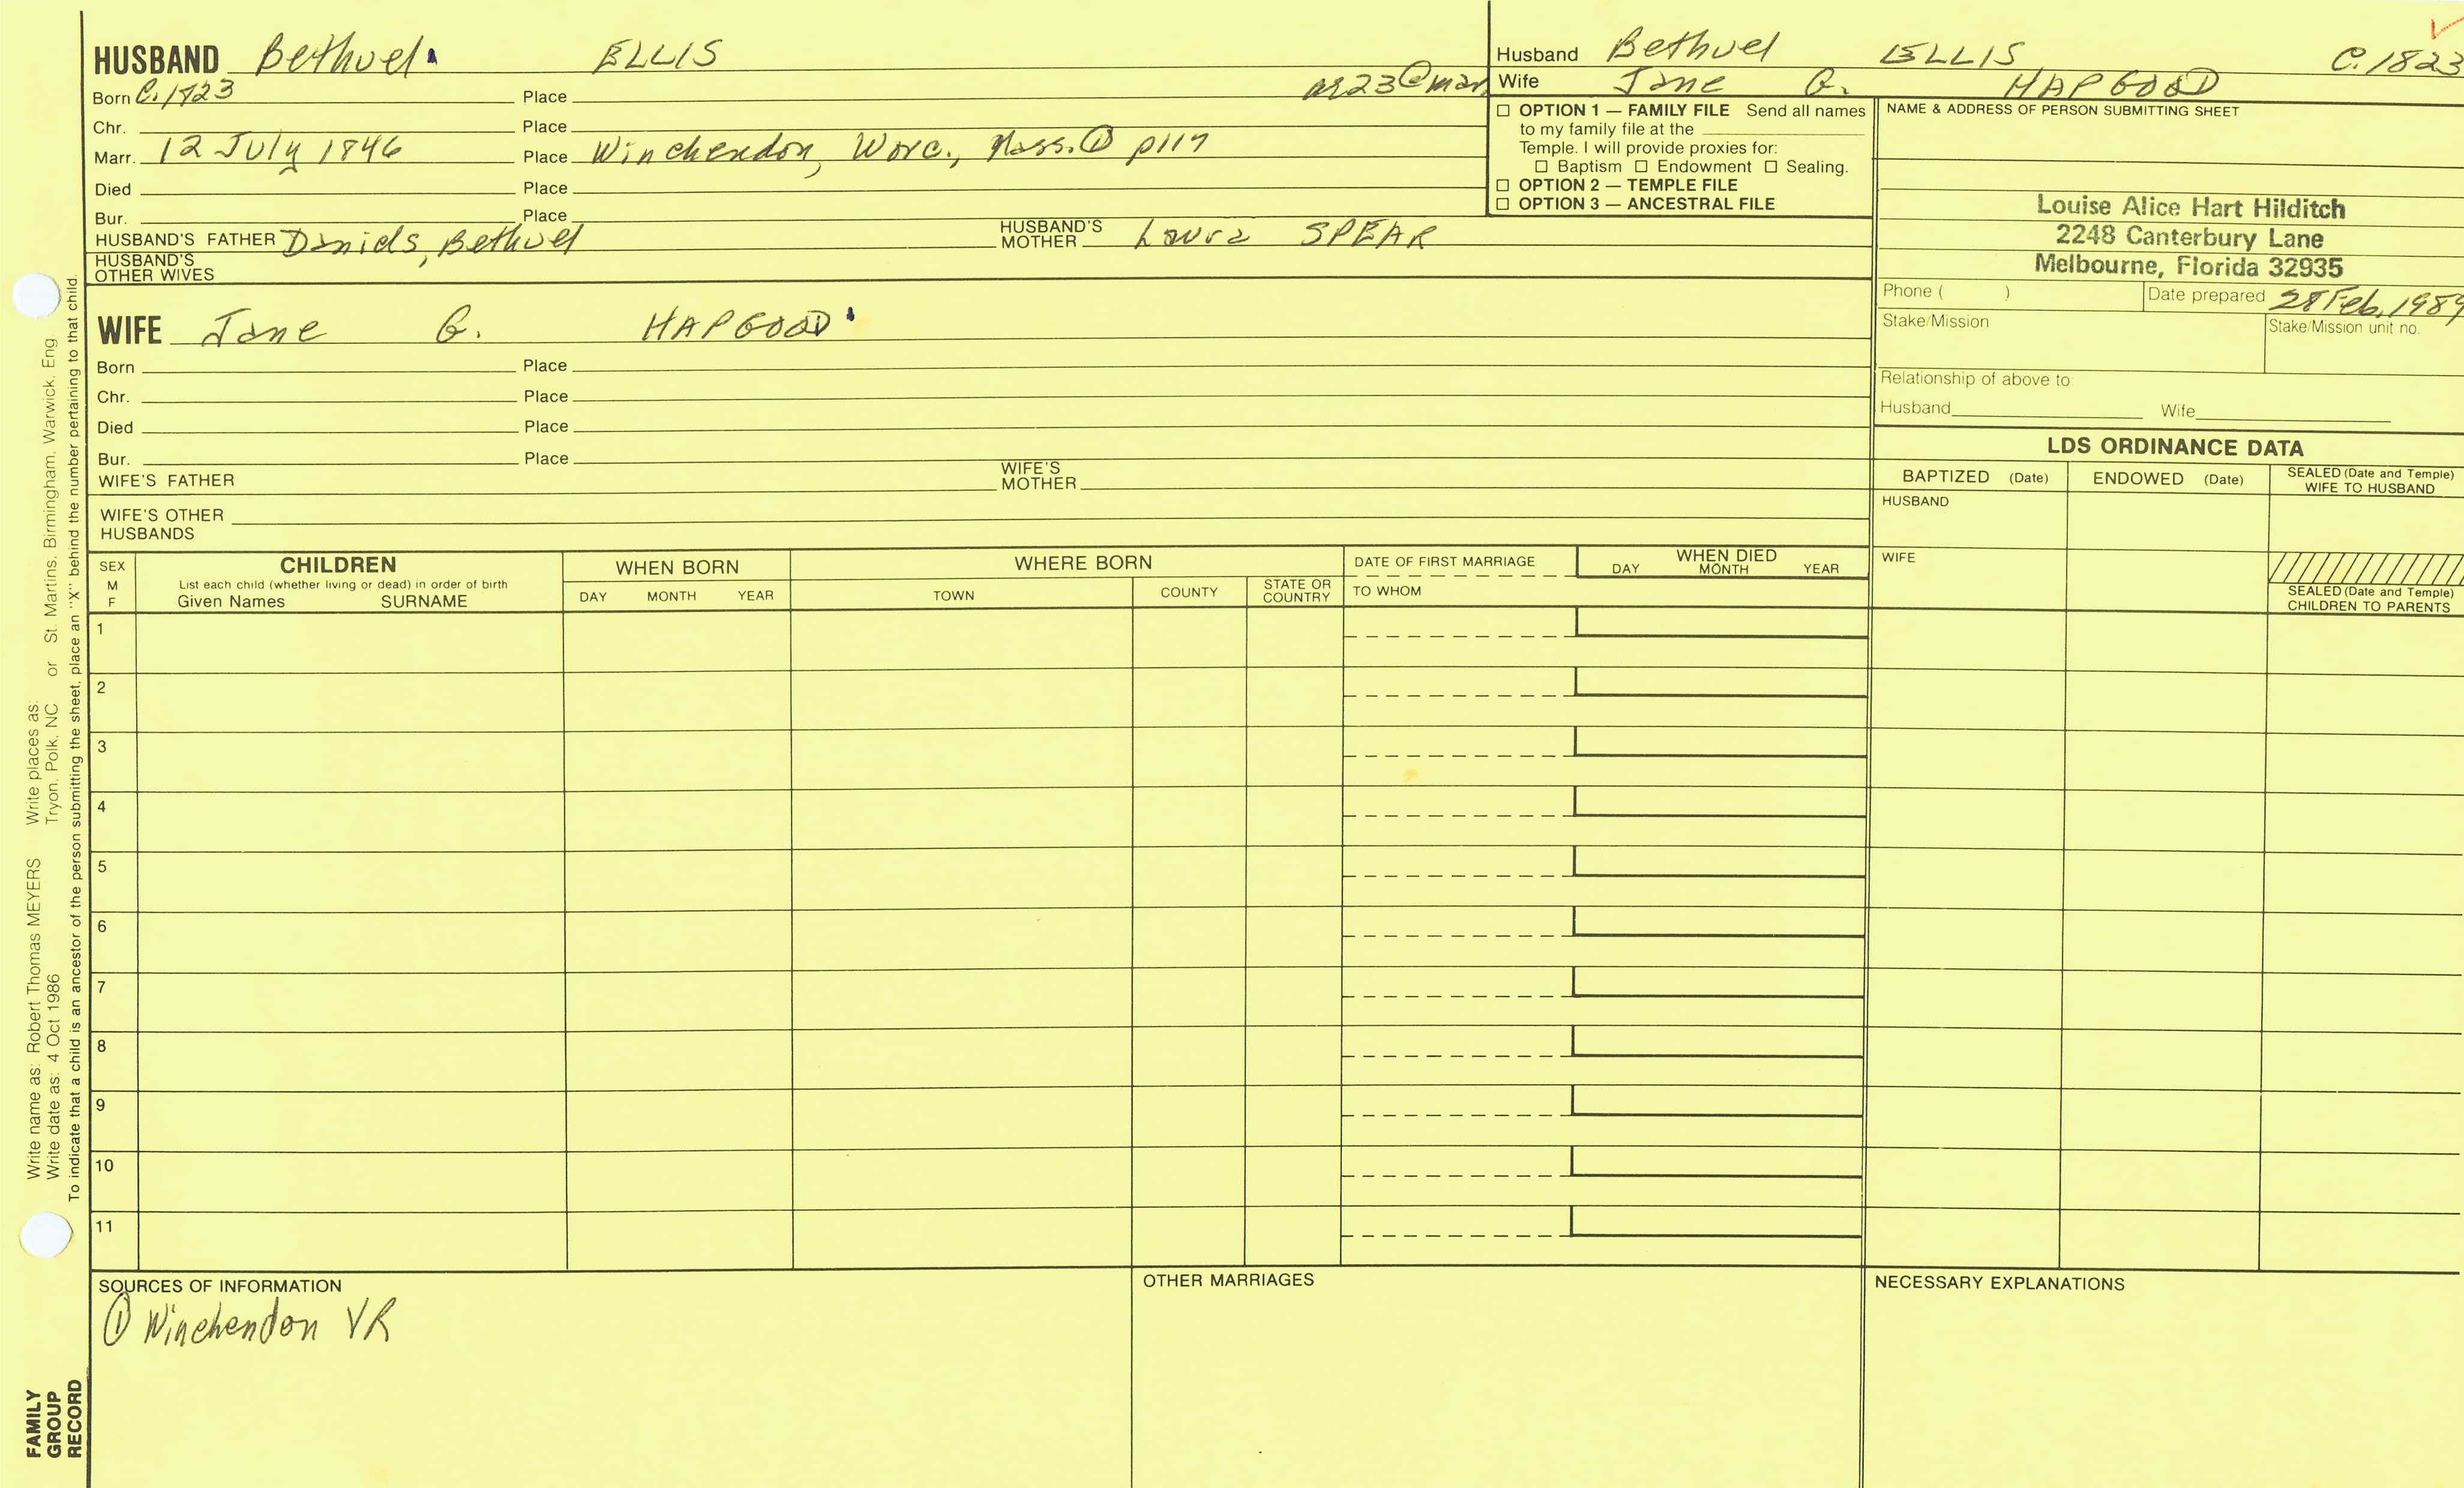 HUSBAND Bethuel ELLIS
Born C. 1823 Place
Chr. Place
Marr. 12 July 1846 Place Winchendon, Worc., Mass. ① p117
Died Place
Bur. Place
HUSBAND'S FATHER Daniels, Bethuel HUSBAND'S MOTHER Laura SPEAR
HUSBAND'S OTHER WIVES
WIFE Jane G. HAPGOOD
Born Place
Chr. Place
Died Place
Bur. Place
WIFE'S FATHER WIFE'S MOTHER
WIFE'S OTHER HUSBANDS
Husband Bethuel ELLIS C. 1823
Wife Jane G. HAPGOOD
☐ OPTION 1 — FAMILY FILE Send all names
to my family file at the
Temple. I will provide proxies for:
☐ Baptism ☐ Endowment ☐ Sealing.
☐ OPTION 2 — TEMPLE FILE
☐ OPTION 3 — ANCESTRAL FILE
NAME & ADDRESS OF PERSON SUBMITTING SHEET
Louise Alice Hart Hilditch
2248 Canterbury Lane
Melbourne, Florida 32935
Phone ( ) Date prepared 28 Feb, 1989
Stake/Mission Stake/Mission unit no.
Relationship of above to:
Husband Wife
LDS ORDINANCE DATA
BAPTIZED (Date) ENDOWED (Date) SEALED (Date and Temple) WIFE TO HUSBAND
HUSBAND
WIFE
SEALED (Date and Temple) CHILDREN TO PARENTS
SEX M F
CHILDREN
List each child (whether living or dead) in order of birth
Given Names SURNAME
WHEN BORN
DAY MONTH YEAR
WHERE BORN
TOWN COUNTY STATE OR COUNTRY
DATE OF FIRST MARRIAGE
TO WHOM
WHEN DIED
DAY MONTH YEAR
1
2
3
4
5
6
7
8
9
10
11
SOURCES OF INFORMATION
① Winchendon VR
OTHER MARRIAGES
NECESSARY EXPLANATIONS
Write name as: Robert Thomas MEYERS Write places as:
Write date as: 4 Oct 1986 Tryon, Polk, NC or St. Martins, Birmingham, Warwick, Eng
To indicate that a child is an ancestor of the person submitting the sheet, place an "X" behind the number pertaining to that child.
FAMILY
GROUP
RECORD